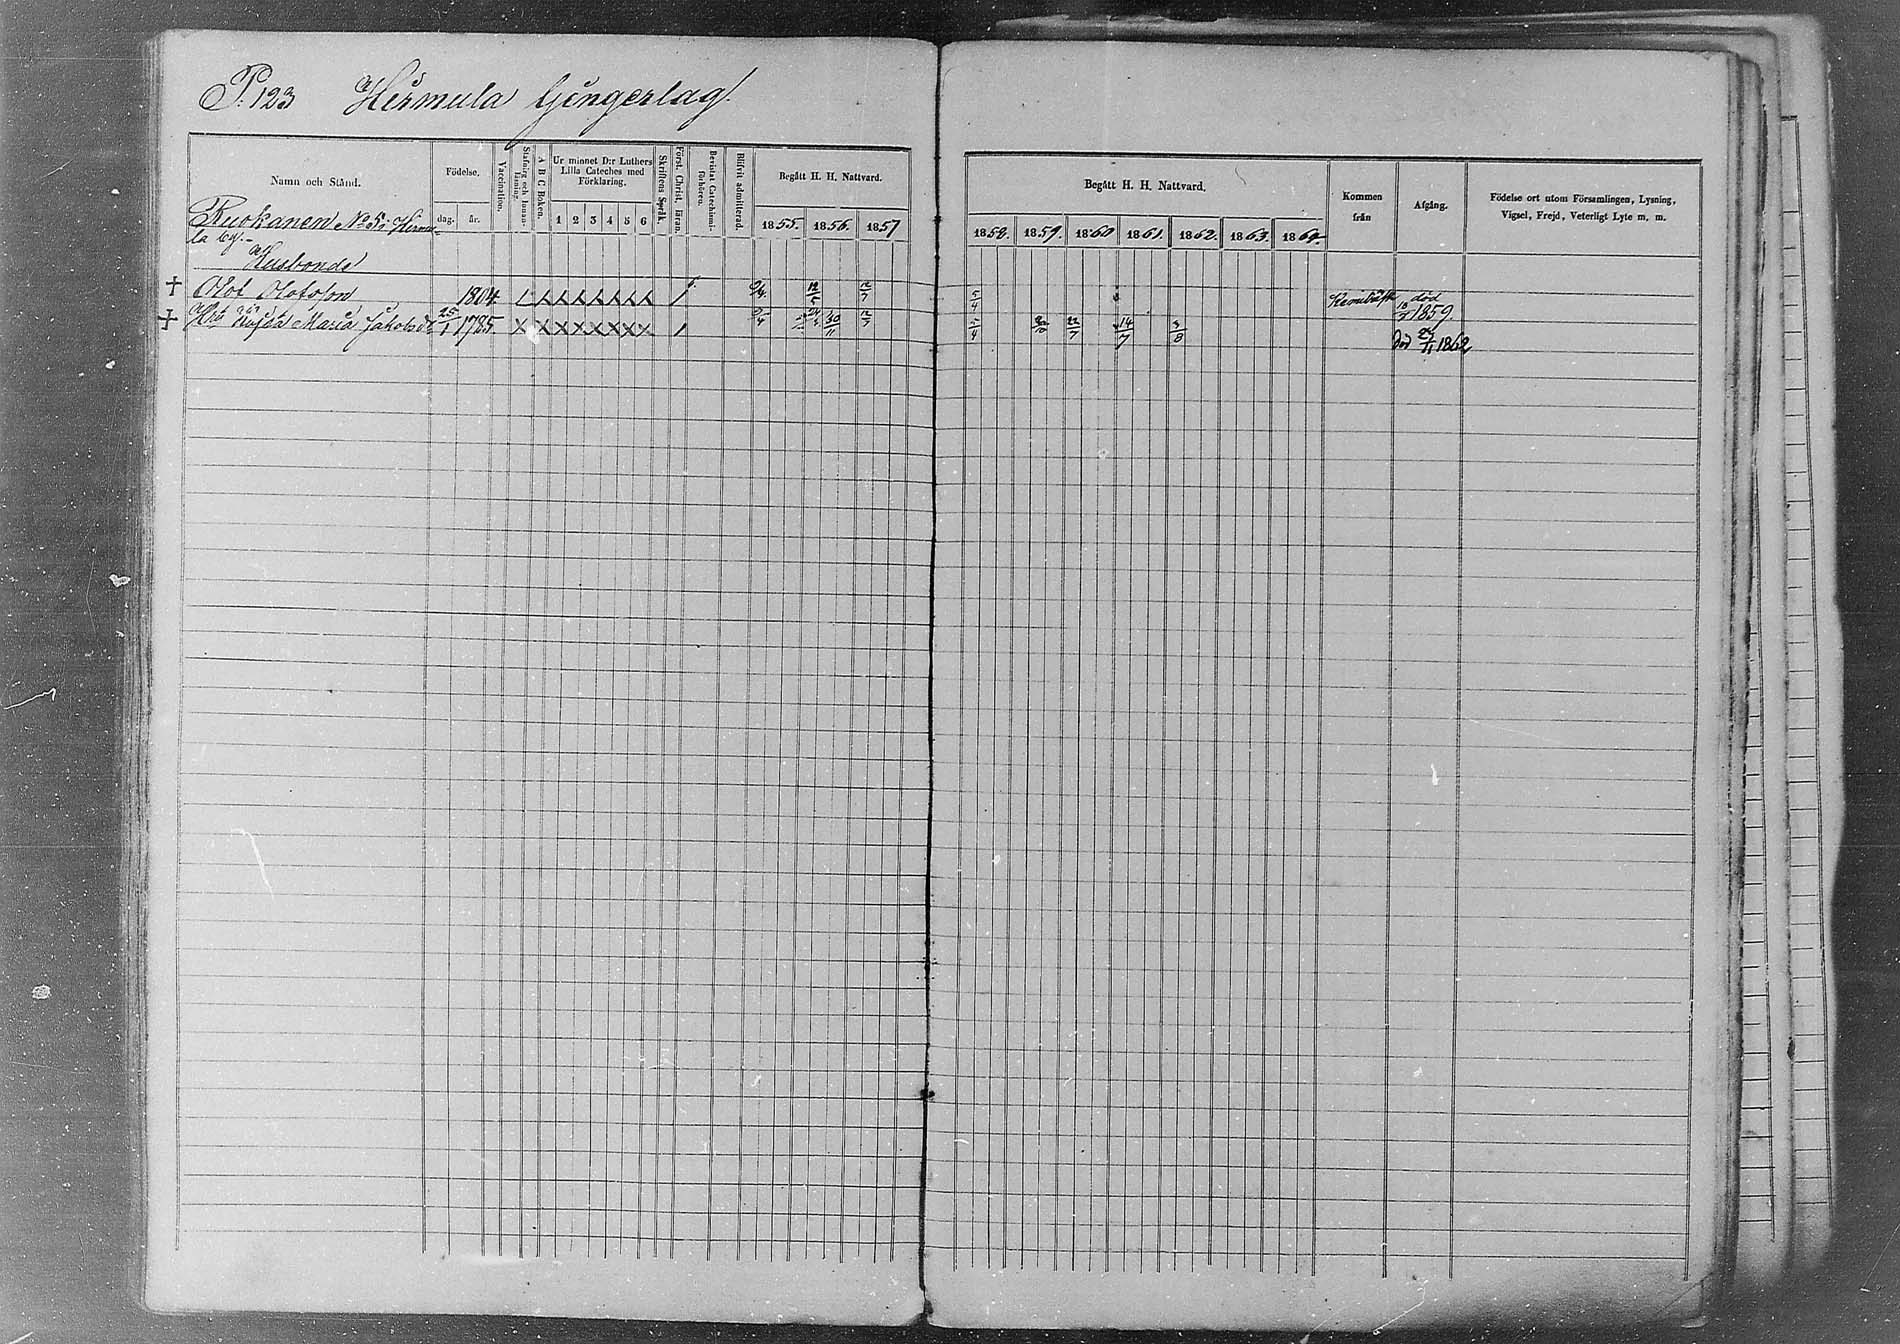 P. 123 Hirmula Gingerlag.
Namn och Stånd.
Födelse.
dag. år.
Vaccination.
Stafning och Innanläsning.
A B C Boken.
Ur minnet D:r Luthers Lilla Cateches med Förklaring.
1 2 3 4 5 6
Skriftens Språk.
Först. Christ. läran.
Bevistat Catechismiförhören.
Blifvit admitterad.
Begått H. H. Nattvard.
1855. 1856. 1857
Begått H. H. Nattvard.
1858. 1859. 1860 1861. 1862. 1863. 1864.
Kommen från
Afgång.
Födelse ort utom Församlingen, Lysning, Vigsel, Frejd, Veterligt Lyte m. m.
Ruokanen No 5 i Hirmu-
la by.
Husbonde
Olof Olofson 1804. 12/5 12/7 5/4 död 1859.
Maria Jakobsd. 25/1 1785. 30/11 12/7 5/4 22/7 14/7 3/8 död 1862